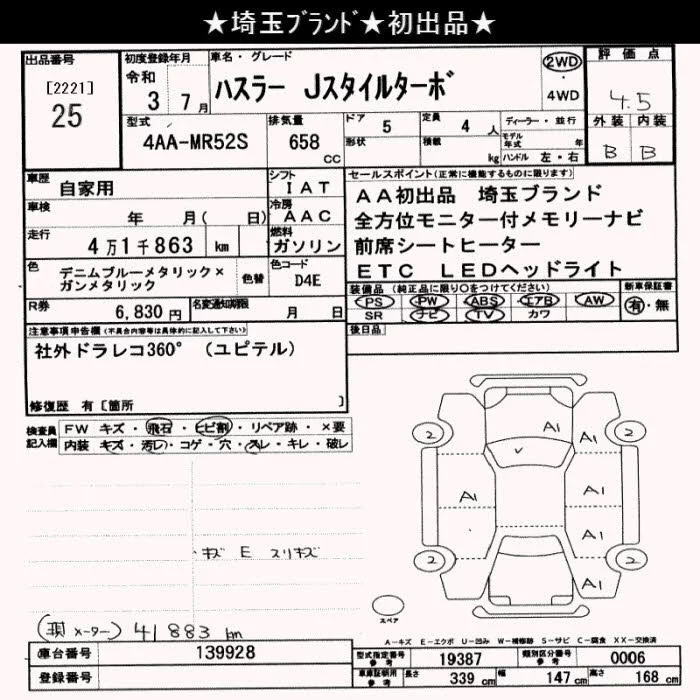 ★埼玉ﾌﾞﾗﾝﾄﾞ★初出品★
出品番号
[2221]
25
初度登録年月
令和
3 7月
車名・グレード
ハスラー Jスタイルターボ
2WD
・
4WD
評価点
4.5
外装 内装
B B
型式
4AA-MR52S
排気量
658
CC
ドア 5
形状
定員 4 人
積載 kg
ディーラー・並行
モデル年式 年
ハンドル 左・右
車歴
自家用
シフト
IAT
車検
年 月( 日)
冷房
AAC
走行
4万1千863 km
燃料
ガソリン
色
デニムブルーメタリック×
ガンメタリック
色替
色コード
D4E
R券
6,830円
名変通知期限
月 日
セールスポイント(正常に機能するものに限ります)
AA初出品 埼玉ブランド
全方位モニター付メモリーナビ
前席シートヒーター
ETC LEDヘッドライト
装備品 (純正品に限り○をつけてください)
PS PW ABS エアB AW
SR ナビ TV カワ
新車保証書
有・無
後日品
注意事項申告欄(不具合内容等は具体的に記入して下さい)
社外ドラレコ360° (ユピテル)
修復歴 有[箇所 ]
検査員
記入欄
FW キズ・飛石・ヒビ割・リペア跡・×要
内装 キズ・汚レ・コゲ・穴・スレ・キレ・破レ
・キズ E スリキズ
(現メーター) 41883 km
2
2
2
2
A1
A1
A1
A1
A1
A1
スペア
A-キズ E-エクボ U-凹み W-補修跡 S-サビ C-腐食 XX-交換済
車台番号
139928
登録番号
型式指定番号
参考
19387
類別区分番号
参考
0006
車庫証明用
参考
長さ 339 cm 幅 147 cm 高さ 168 cm